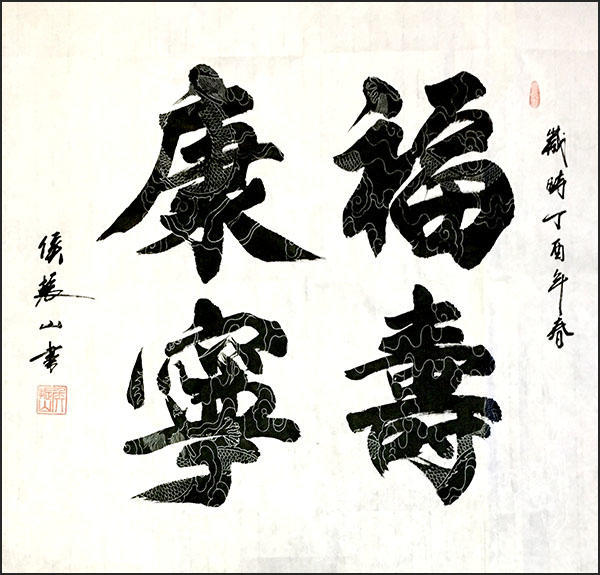 歲時丁酉年春
福壽
康寧
侯山書